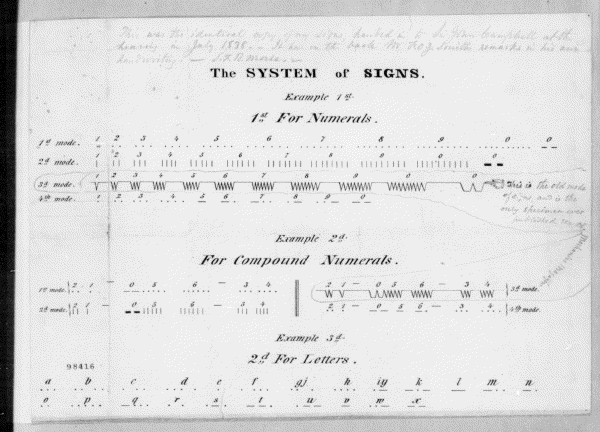 This was the identical copy of my signs, handed in to Sr. Wm. Campbell at the
hearing in July 1838. It has on the back Mr. F.O.J. Smith's remarks in his own
handwriting. — S.F.B. Morse. —
The SYSTEM of SIGNS.
Example 1st
1st For Numerals.
1st mode. 1 2 3 4 5 6 7 8 9 0 0
2d mode. 1 2 3 4 5 6 7 8 9 0 0
3d mode. 1 2 3 4 5 6 7 8 9 0 0
4th mode. 1 2 3 4 5 6 7 8 9 0
This is the old mode
of signs and is the
only specimen ever
published
Example 2d
For Compound Numerals.
1st mode. 2 1 — 0 5 6 — 3 4
2d mode. 2 1 — 0 5 6 — 3 4
2 1 — 0 5 6 — 3 4 3d mode.
2 1 — 0 5 6 — 3 4 4th mode.
Example 3d
2d For Letters.
98416
a b c d e f gj h iy k l m n
o p q r s t u v w x